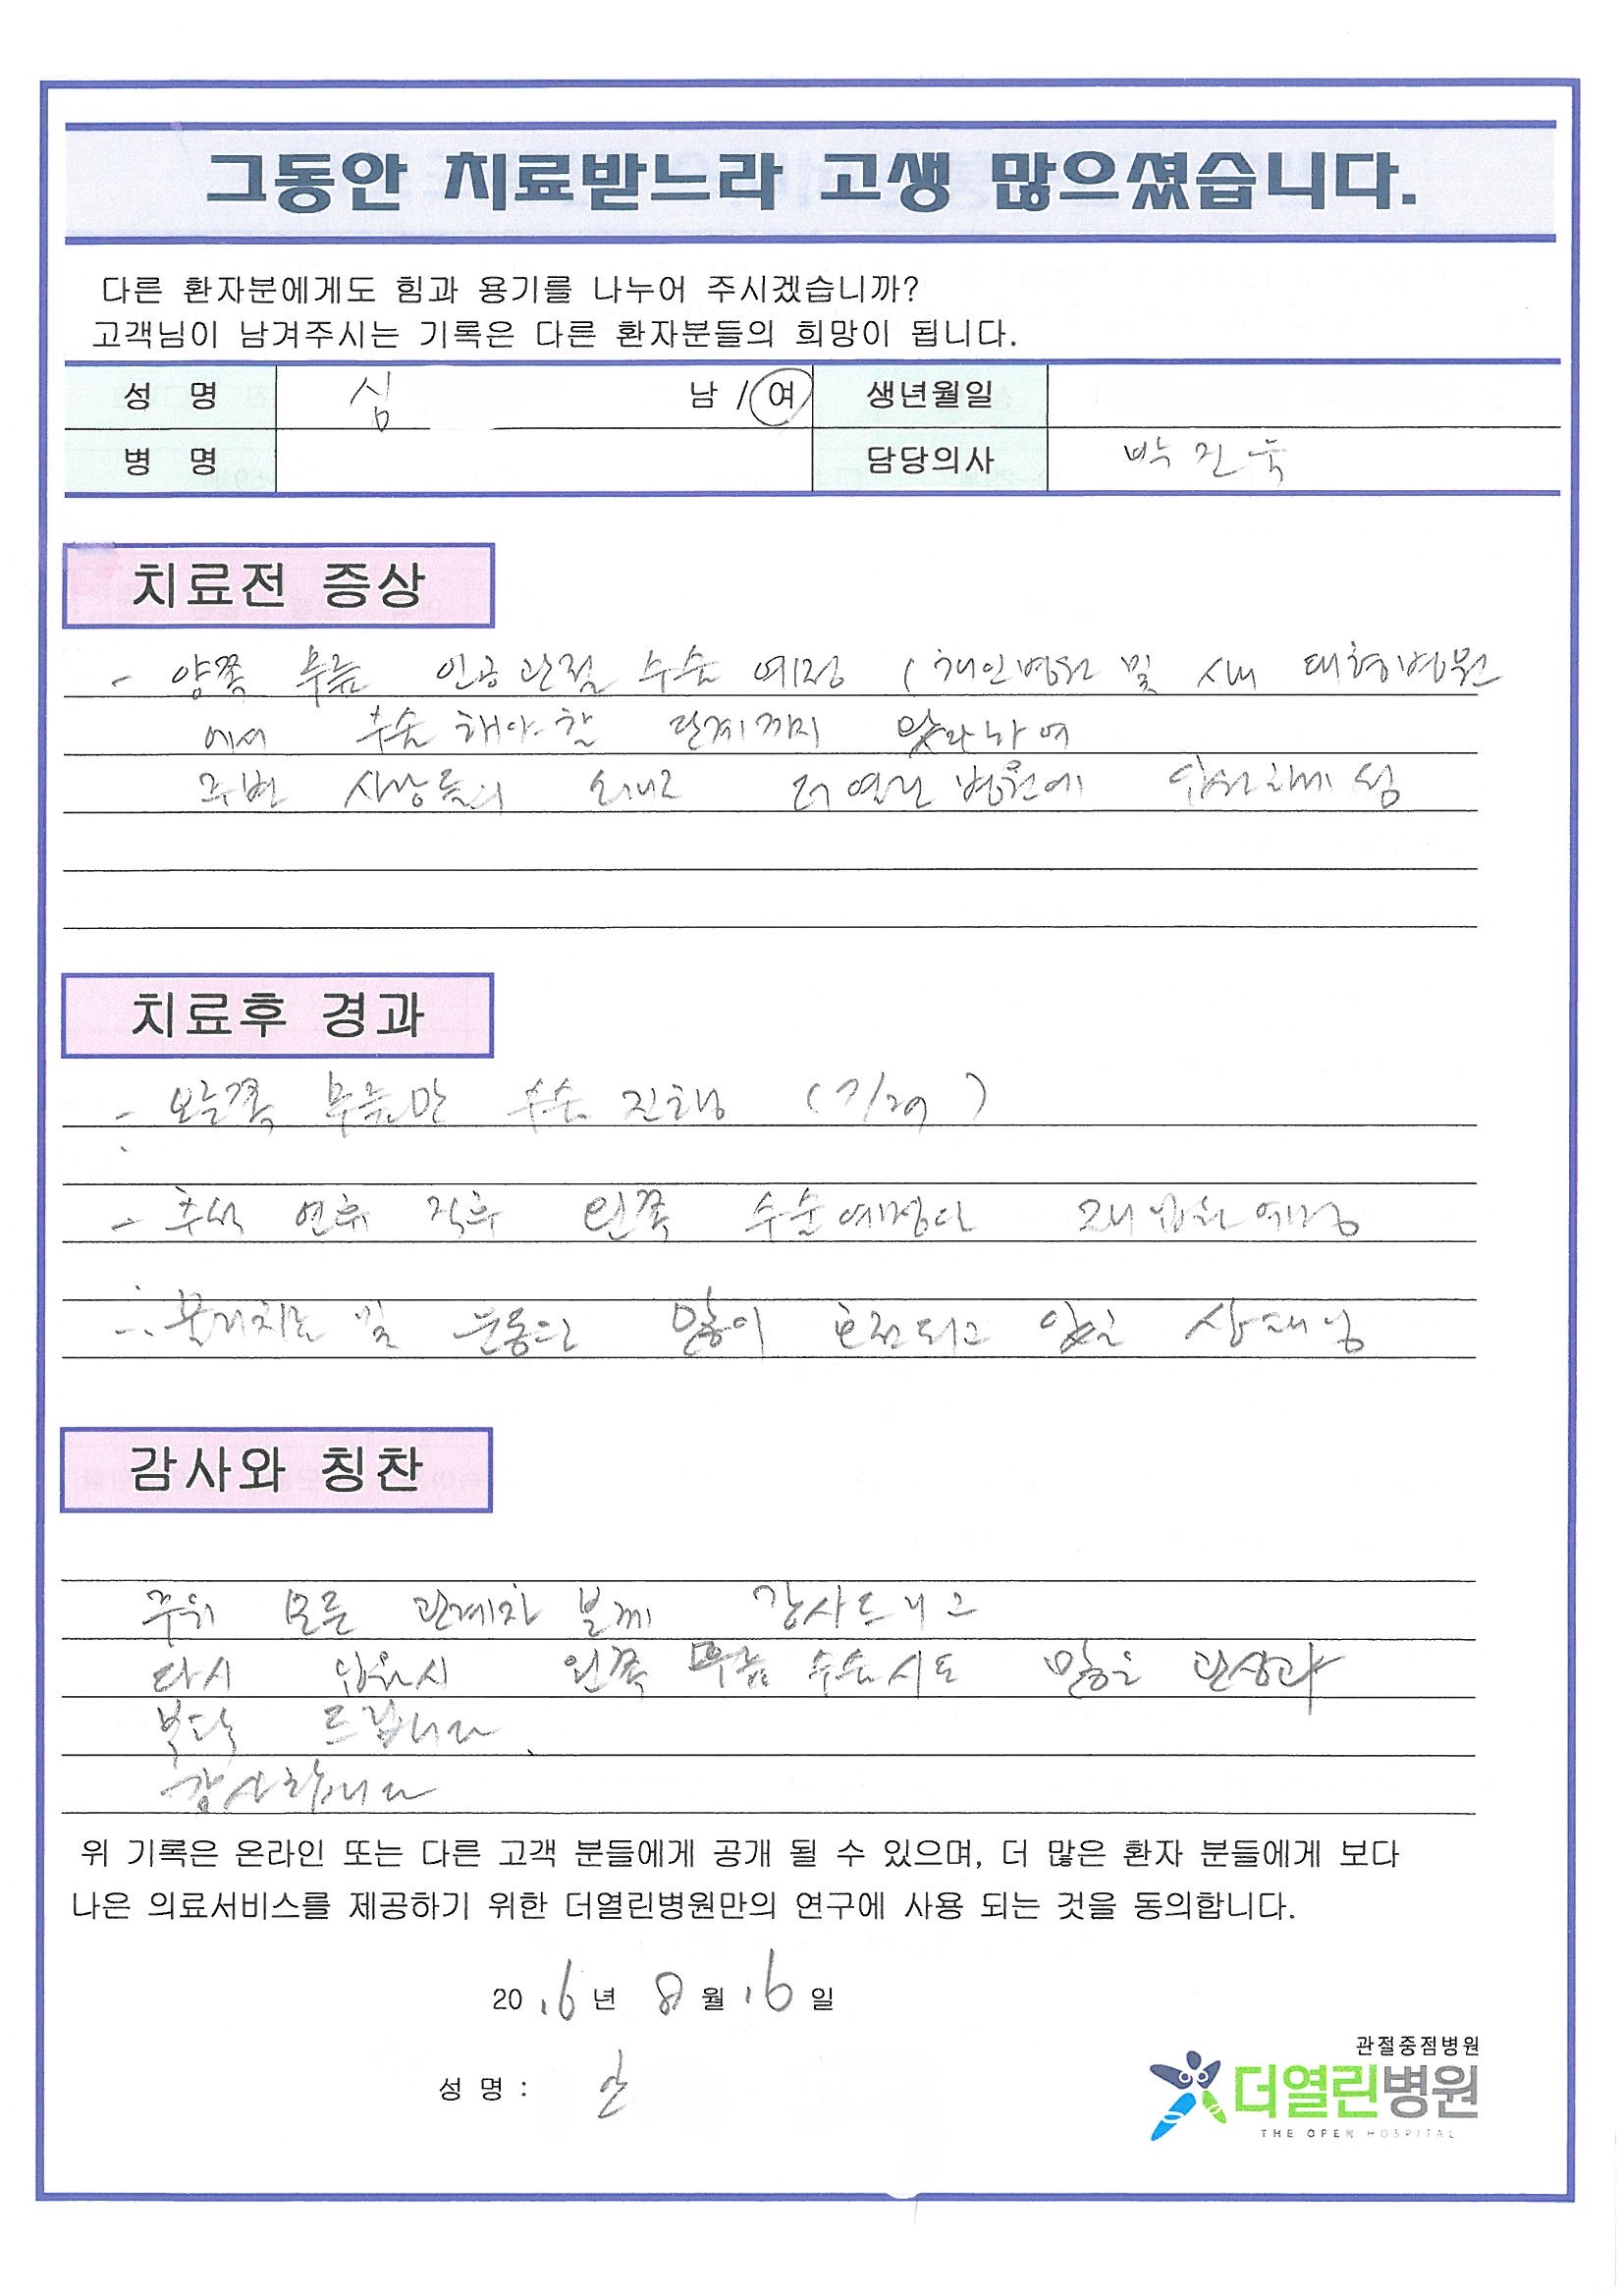 그동안 치료받느라 고생 많으셨습니다.
다른 환자분에게도 힘과 용기를 나누어 주시겠습니까?
고객님이 남겨주시는 기록은 다른 환자분들의 희망이 됩니다.
성 명 심 남 / 여 생년월일
병 명 담당의사 박진욱
치료전 증상
- 양쪽 무릎 인공관절 수술 예정 (개인병원 및 시내 대형병원
에서 수술해야할 단계까지 왔다하여
주변 사람들의 소개로 더열린병원에 입원하게 됨
치료후 경과
- 오른쪽 무릎만 수술 진행 (7/29)
- 추석 연휴 직후 왼쪽 수술예정 재입원예정
물리치료 및 운동으로 많이 호전되고 있는 상태임
감사와 칭찬
주위 모든 관계자 분께 감사드리고
다시 입원시 왼쪽 무릎 수술시도 많은 관심과
부탁 드립니다.
감사합니다
위 기록은 온라인 또는 다른 고객 분들에게 공개 될 수 있으며, 더 많은 환자 분들에게 보다
나은 의료서비스를 제공하기 위한 더열린병원만의 연구에 사용 되는 것을 동의합니다.
2016년 8월 16일
성 명 :
관절중점병원
더열린병원
THE OPEN HOSPITAL